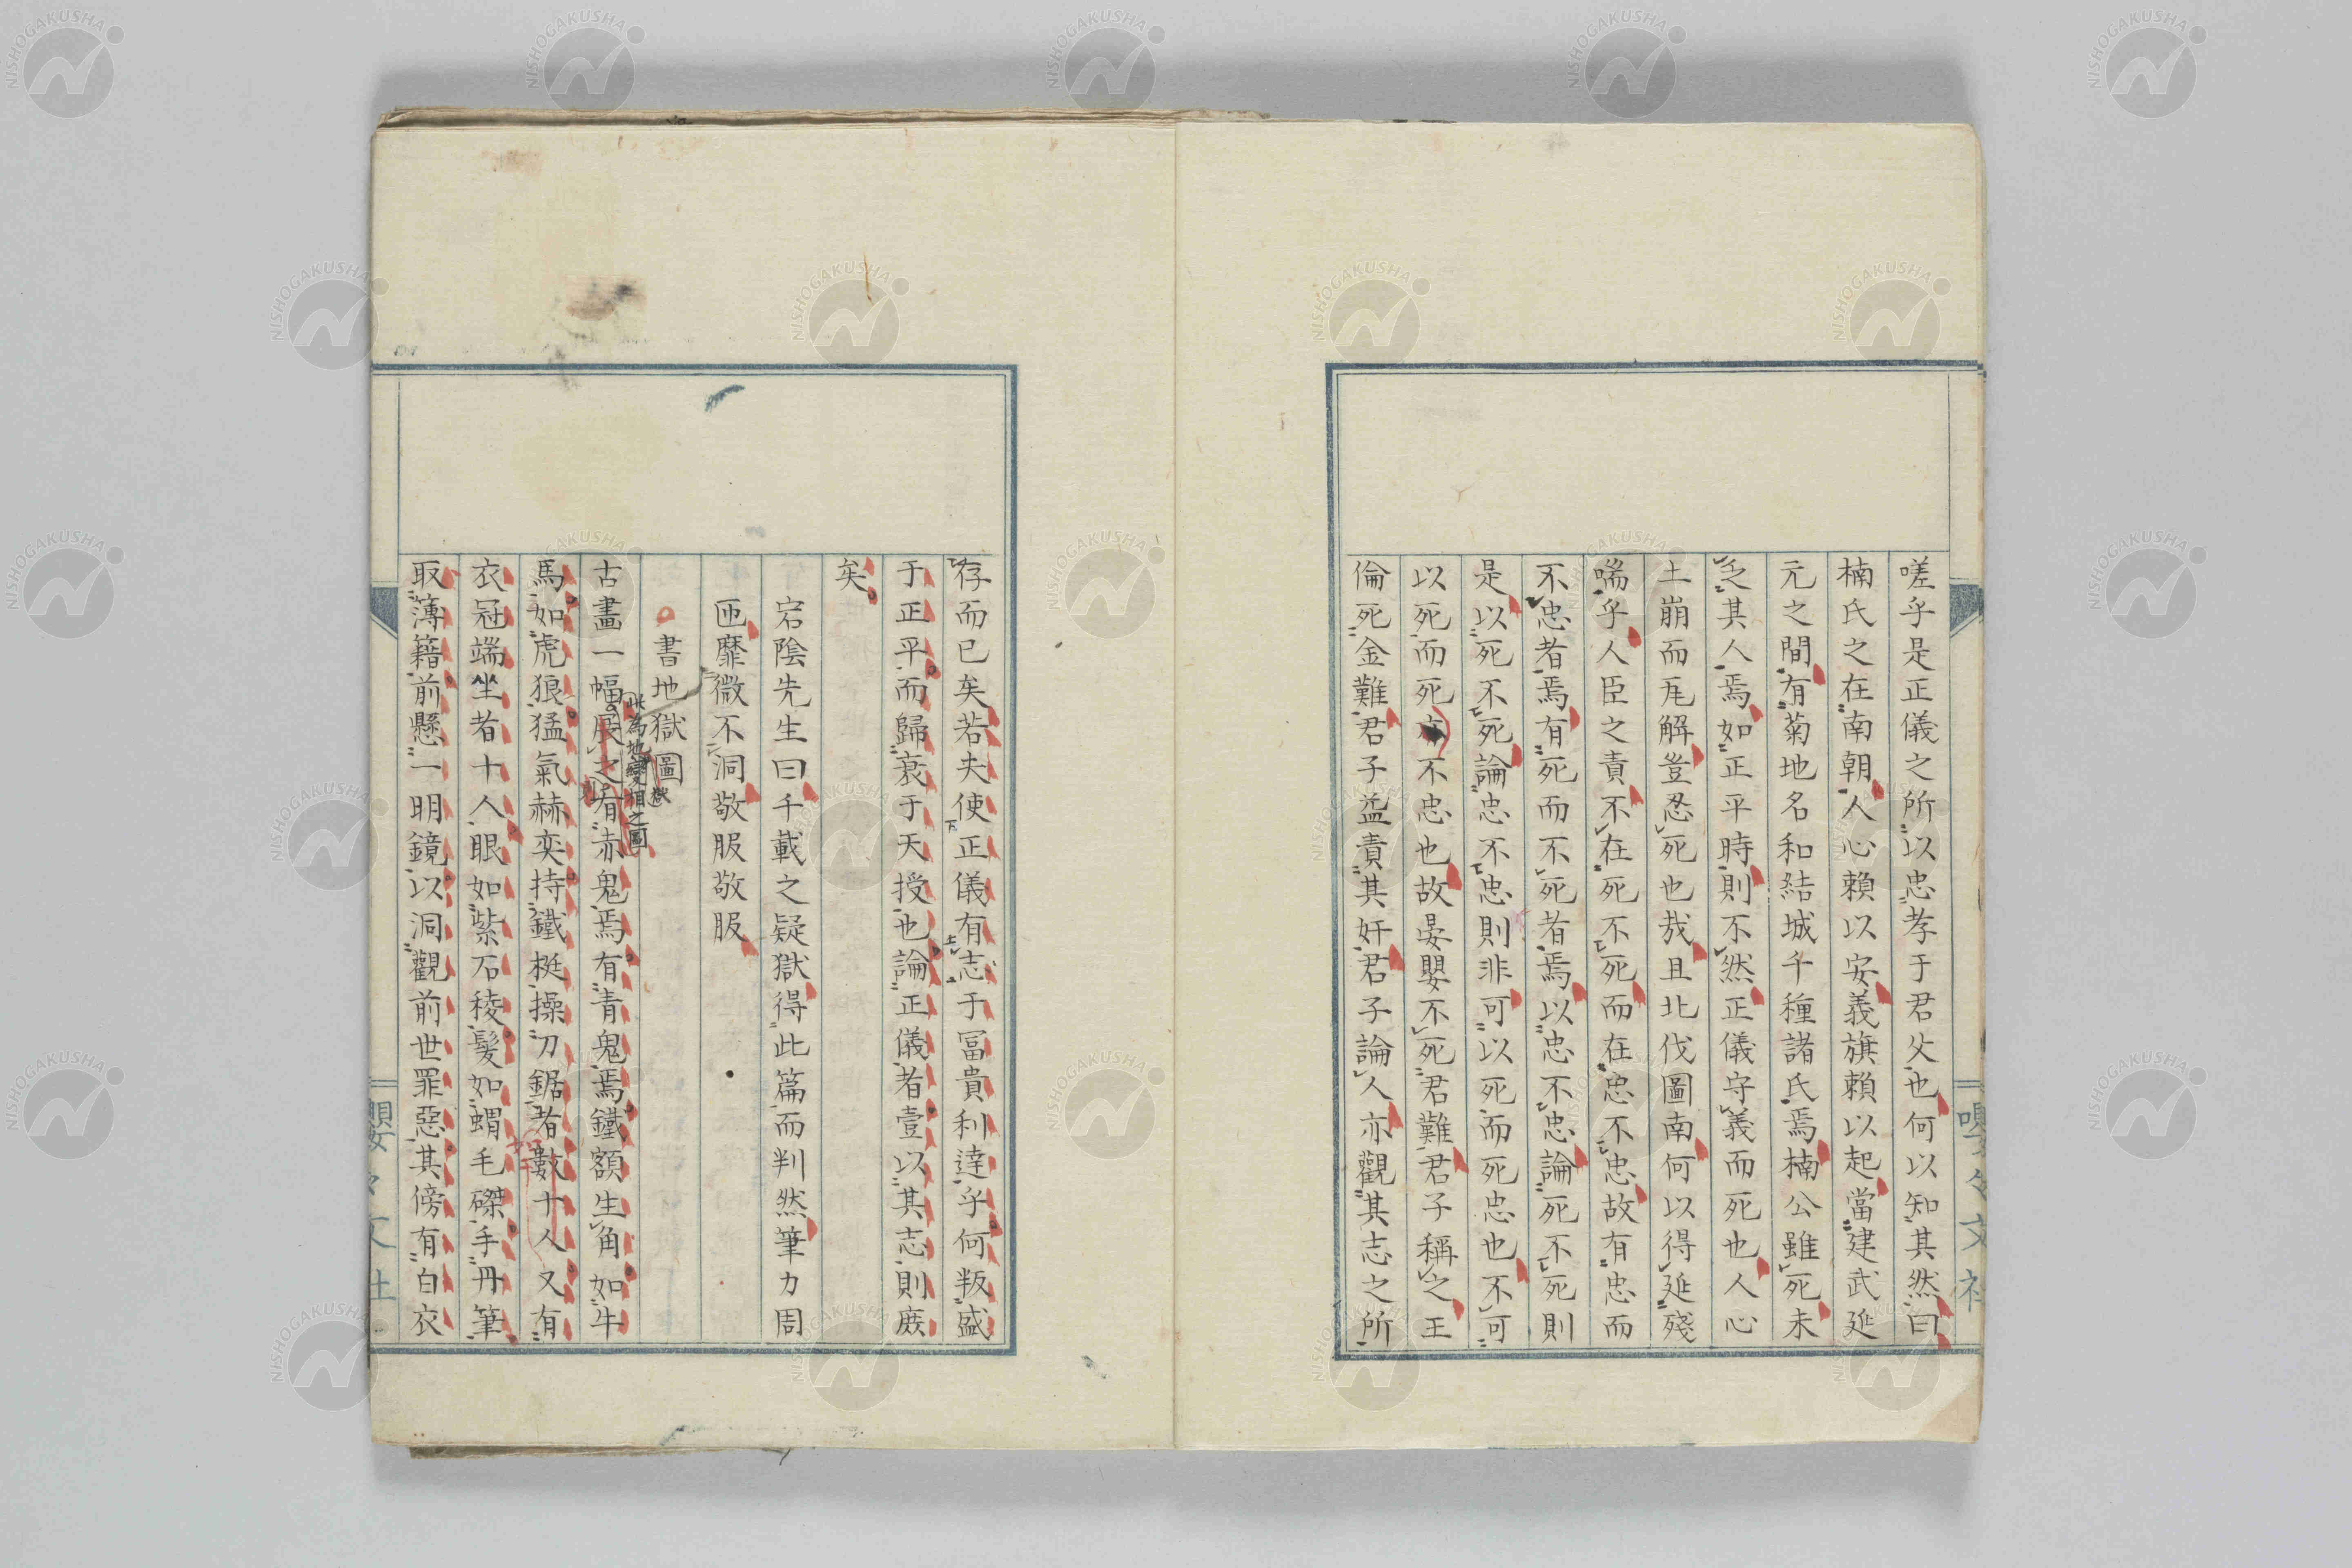 嗟乎是正儀之所以忠孝于君父也何以知其然曰
楠氏之在南朝人心賴以安義旗賴以起當建武延
元之間有菊地名和結城千種諸氏焉楠公雖死未
乏其人焉如正平時則不然正儀守義而死也人心
土崩而瓦解豈忍死也哉且北伐圖南何以得延殘
喘乎人臣之責不在死不死而在忠不忠故有忠而
不忠者焉有死而不死者焉以忠不忠論死不死則
是以死不死論忠不忠則非可以死而死忠也不可
以死而死不忠也故晏嬰不死君難君子稱之王
倫死金難君子益責其奸君子論人亦觀其志之所
嚶々文社
存而已矣若夫使正儀有志于冨貴利達乎何叛盛
于正平而歸衰于天授也論正儀者壹以其志則庶
矣
宕陰先生曰千載之疑獄得此篇而判然筆力周
匝靡微不洞敬服敬服
書地獄圖
古畫一幅展之有赤鬼焉有青鬼焉鐵額生角如牛
此為地獄變相之圖
馬如虎狼猛氣赫奕持鐵梃操刀鋸者數十人又有
衣冠端坐者十人眼如紫石稜髮如蝟毛磔手丹筆
取薄籍前懸一明鏡以洞觀前世罪惡其傍有白衣
嚶々文社
NISHOGAKUSHA